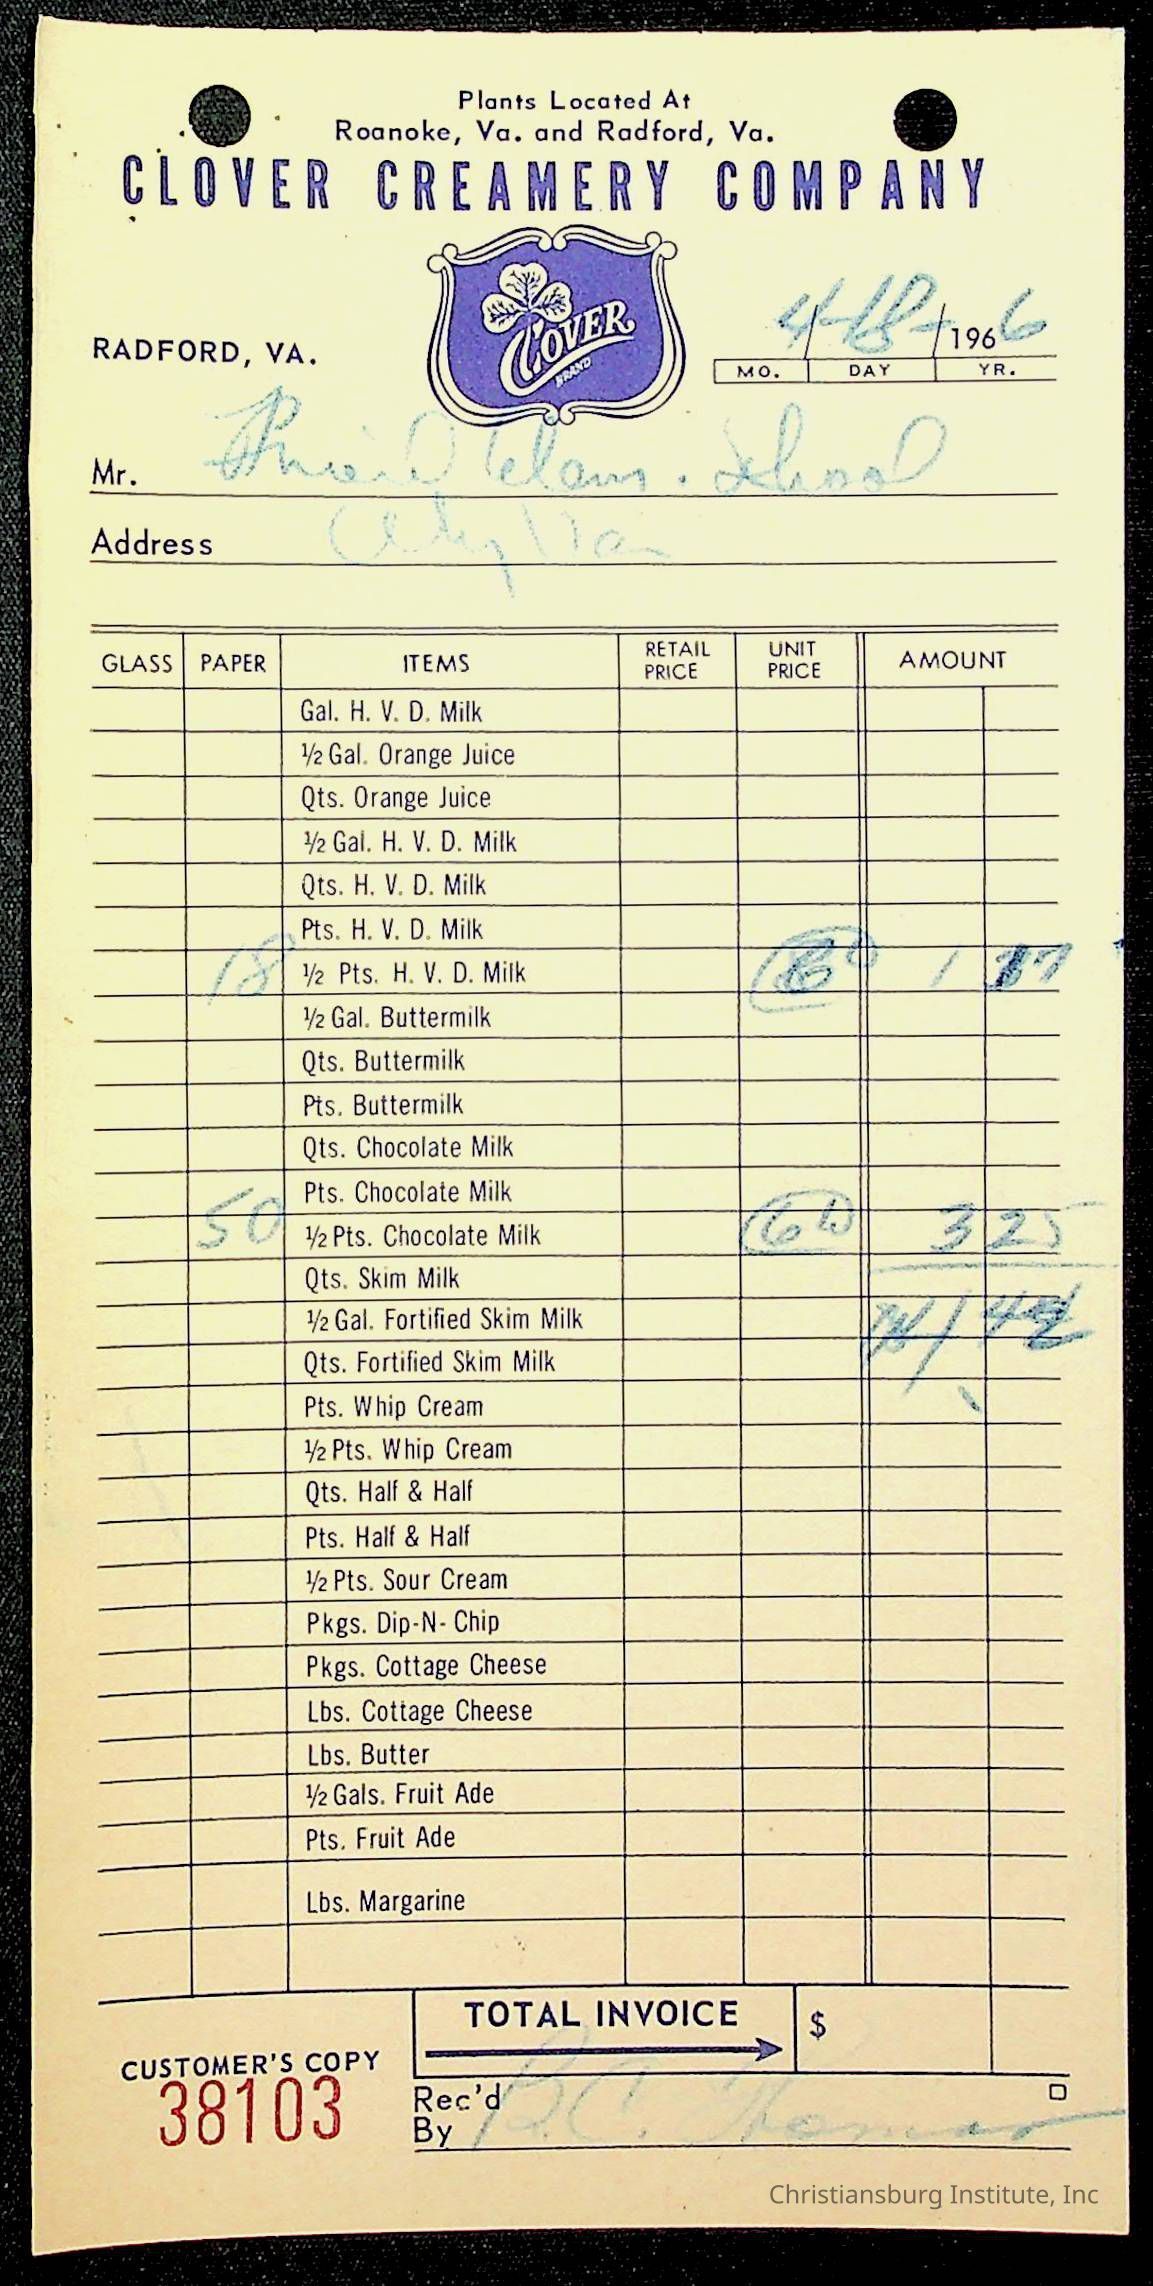 Plants Located At
Roanoke, Va. and Radford, Va.
CLOVER CREAMERY COMPANY
CLOVER
BRAND
RADFORD, VA.
4-18- 1966
MO. DAY YR.
Mr. School
Address
GLASS PAPER ITEMS RETAIL PRICE UNIT PRICE AMOUNT
Gal. H. V. D. Milk
½ Gal. Orange Juice
Qts. Orange Juice
½ Gal. H. V. D. Milk
Qts. H. V. D. Milk
Pts. H. V. D. Milk
18 ½ Pts. H. V. D. Milk 1
½ Gal. Buttermilk
Qts. Buttermilk
Pts. Buttermilk
Qts. Chocolate Milk
Pts. Chocolate Milk
50 ½ Pts. Chocolate Milk 3 25
Qts. Skim Milk
½ Gal. Fortified Skim Milk
Qts. Fortified Skim Milk
Pts. Whip Cream
½ Pts. Whip Cream
Qts. Half & Half
Pts. Half & Half
½ Pts. Sour Cream
Pkgs. Dip-N-Chip
Pkgs. Cottage Cheese
Lbs. Cottage Cheese
Lbs. Butter
½ Gals. Fruit Ade
Pts. Fruit Ade
Lbs. Margarine
TOTAL INVOICE $
CUSTOMER'S COPY
38103
Rec'd
By B.C. Thomas
Christiansburg Institute, Inc